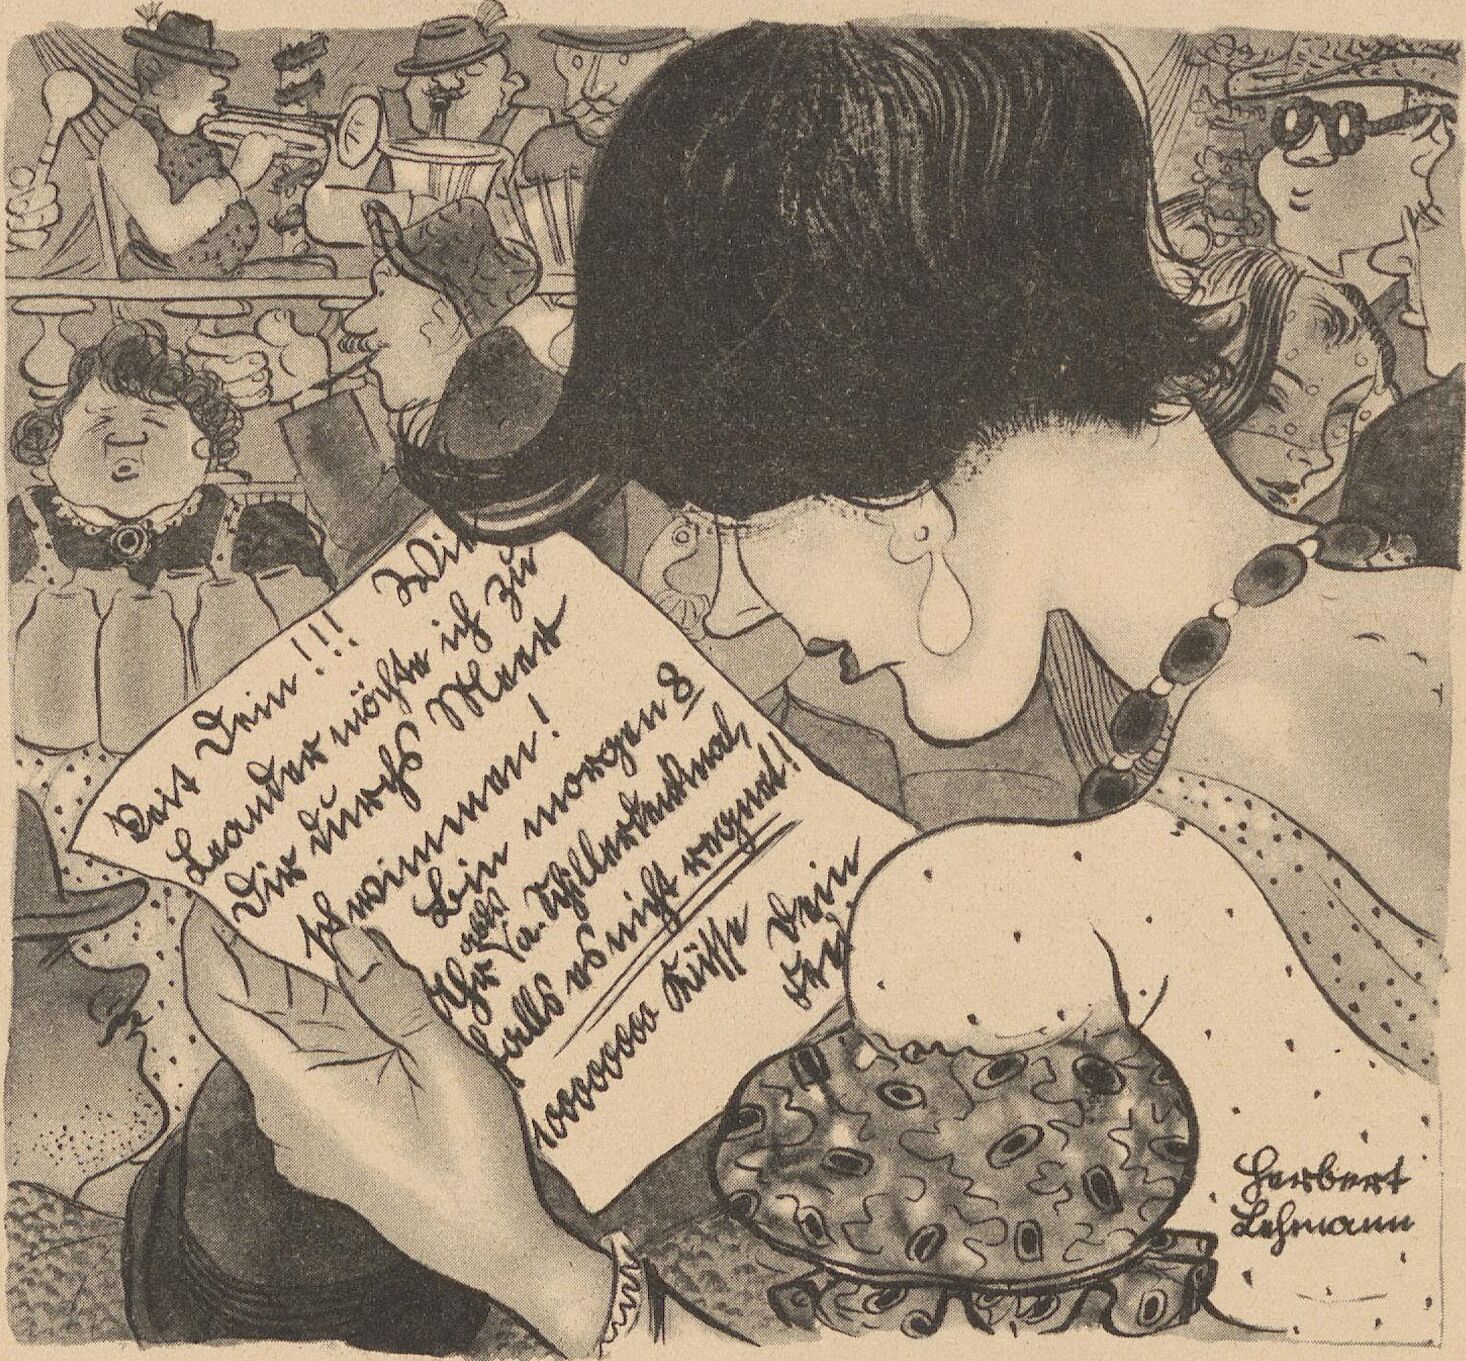 Dein!!! Wie
Leander möchte ich zu
Dir durchs Meer
schwimmen!
Bin morgen 8
Uhr a. Schillerdenkmal,
falls es nicht regnet!!
10000000 Küsse Dein
Herbert
Lehmann